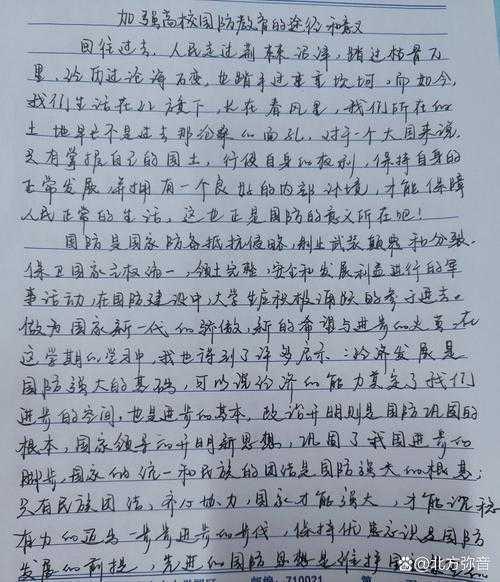 加强高校国防教育的途径和意义
回往过去，人民走过荆棘泥泞，踏过枯骨万
里，经历过沧海万变，也踏平过重重坎坷，而如今，
我们生活在红旗下，长在春风里，我们所在的
土地早已不是过去那沧桑的面孔，对于一个大国来说，
只有掌握自己的国土，行使自身的权利，保持自身的
正常发展，并拥有一个良好的内部环境，才能保障
人民正常的生活，这也正是国防的意义所在吧！
国防是国家防备抵抗侵略，制止武装颠覆和分裂，
保卫国家主权统一，领土完整，安全和发展利益进行的军
事活动，在国防建设中，大学生应积极踊跃的参与进去。
做为国家新一代的骄傲，新的希望与进步的火苗，在
这学期的学习中，我也得到了许多启示：经济发展是
国防强大的基础，可以说经济的能力奠定了我们
进步的空间，也是进步的基本，政治开明则是国防巩固的
根本，国家领导和开明新思想，巩固了我国进步的
脚步，国家的统一和民族的团结是国防强大的根基；
只有民族团结，齐心协力，国家才能强大，才能说稳
有力的迈每一步步进步的步伐，保持忧患意识是国防
发展的前提，先进的国防思想是维护国
710021
@北方弥音